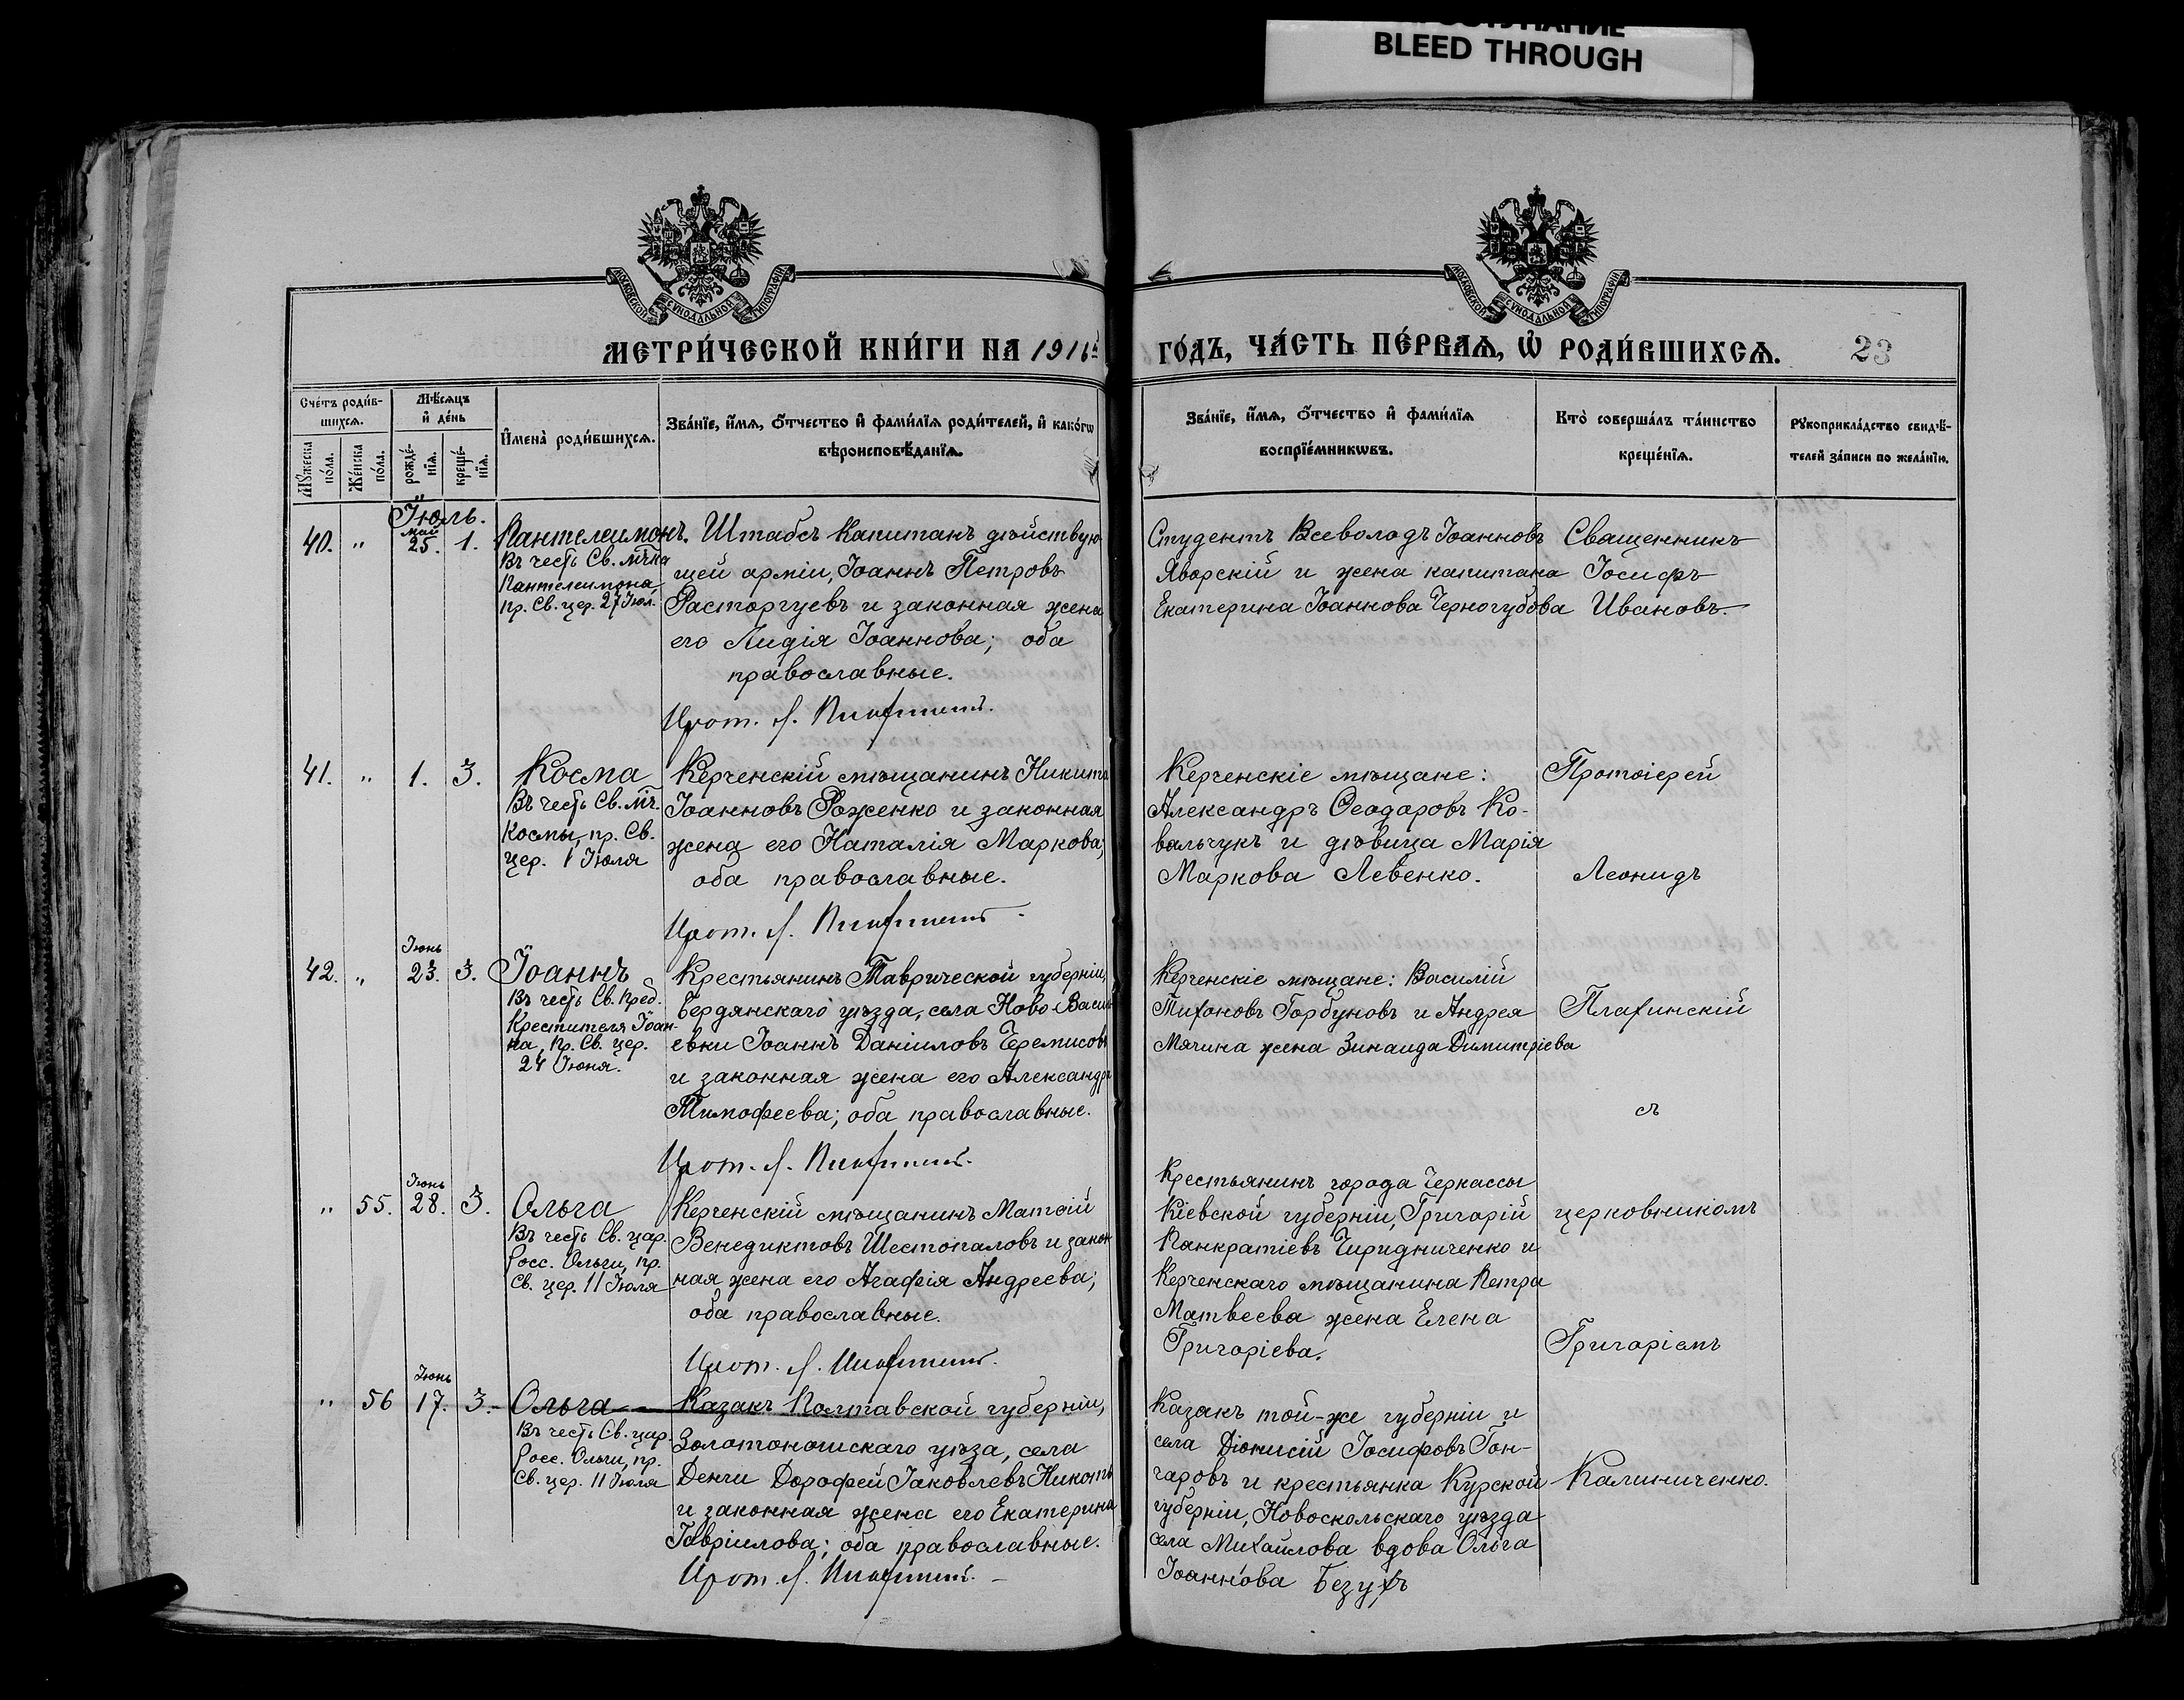 BLEED THROUGH
МОСКОВСКОЙ СѴНОДАЛЬНОЙ ТИПОГРАФІИ
МОСКОВСКОЙ СѴНОДАЛЬНОЙ ТИПОГРАФІИ
МЕТРИ́ЧЕСКОЙ КНИ́ГИ НА 1916й
ГО́ДЪ, ЧА́СТЬ ПЕ́РВАѦ, Ѡ҆ РОДИ́ВШИХСѦ. 23
Сче́тъ роди́в-
шихсѧ.
Мꙋ́жеска по́ла.
Же́нска по́ла.
Мѣ́сѧцъ и҆ де́нь
рожде́-нїѧ.
креще́-нїѧ.
И҆мена̀ роди́вшихсѧ.
Зва́нїе, и҆́мѧ, ѻ҆́тчество и҆ фами́лїѧ роди́телей, и҆ како́гѡ
вѣроисповѣ́данїѧ.
Зва́нїе, и҆́мѧ, ѻ҆́тчество и҆ фами́лїѧ
воспрїе́мникѡвъ.
Кто̀ соверша́лъ та́инство
креще́нїѧ.
Рꙋкоприкла́дство свидѣ́-
телей за́писи по жела́нїю.
Іюль.
40. " май 25. 1.
Пантелеимонъ.
Въ честь Св. м̃чка
Пантелеимона,
пр. Св. цер. 27 Іюл.
Штабсъ Капитанъ дѣйствую-
щей арміи, Іоаннъ Петровъ
Расторгуевъ и законная жена
его Лидія Іоаннова; оба
православные.
Прот. Л.
Студентъ Всеволодъ Іоанновъ
Яворскій и жена капитана
Екатерина Іоаннова Черногубова
Священникъ
Іосифъ
Ивановъ.
41. " 1. 3.
Косма
Въ честь Св. м̃ч.
Космы, пр. Св.
цер. 1 Іюля
Керченскій мѣщанинъ Никита
Іоанновъ Роженко и законная
жена его Наталія Маркова;
оба православные.
Прот. Л.
Керченскіе мѣщане:
Александръ Ѳеодоровъ Ко-
вальчукъ и дѣвица Марія
Маркова Левенко.
Протоіерей
Леонидъ
42. " Іюнь 23. 3.
Іоаннъ
Въ честь Св. Пред.
Крестителя Іоан-
на, пр. Св. цер.
24 Іюня.
Крестьянинъ Таврической губерніи,
Бердянскаго уѣзда, села Ново-Васил-
евки Іоаннъ Даніиловъ Черемисовъ
и законная жена его Александра
Тимофеева; оба православные.
Прот. Л.
Керченскіе мѣщане: Василій
Тихоновъ Горбуновъ и Андрея
Мячина жена Зинаида Димитріева
Плахинскій
съ
" 55. Іюнь 28. 3.
Ольга
Въ честь Св. цар.
Росс. Ольги, пр.
Св. цер. 11 Іюля
Керченскій мѣщанинъ Матѳій
Венедиктовъ Шестопаловъ и закон
ная жена его Агафія Андреева;
оба православные.
Прот. Л.
Крестьянинъ города Черкассы
Кіевской губерніи, Григорій
Панкратіевъ Чиридниченко и
Керченскаго мѣщанина Петра
Матвеева жена Елена
Григоріева.
церковникомъ
Григоріемъ
" 56 Іюнь 17. 3.
Ольга
Въ честь Св. цар.
Росс. Ольги, пр.
Св. цер. 11 Іюля
Казакъ Полтавской губерніи,
Золотоношскаго уѣза, села
Денги Дорофей Іаковлевъ
и законная жена его Екатерина
Гавріилова; оба православные.
Прот. Л.
Казакъ той-же губерніи и
села Діонисій Іосифовъ Гон-
чаровъ и крестьянка Курской
губерніи, Новоскольскаго уѣзда
села Михайлова вдова Ольга
Іоаннова Безухъ
Калиниченко.